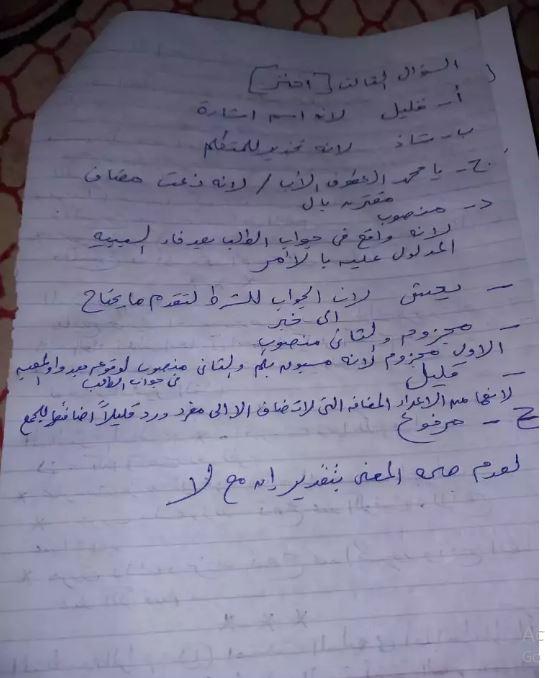 السؤال الثالث [اختر]
أ- قليل لانه اسم اشارة
ب- شاذ لانه تحذير للمتكلم
ج- يا محمد العطوف الأب / لانه نعت مضاف
مقترن بال
د- منصوب
لانه واقع فى جواب الطلب بعد فاء السببيه
المدلول عليه بالأمر
- يعش لان الجواب للشرط لتقدم ما يحتاج
الى خبر
- مجزوم والثانى منصوب
الاول مجزوم لانه مسبوق بلم والثانى منصوب لوقوعه بعد واو المعيه
فى جواب الطلب
- قليل
لانها من الاعداد المضافه التى لا تضاف الا الى مفرد ورد قليلاً اضافتها للجمع
ح - مرفوع
لعدم صحه المعنى بتقدير إن مع لا